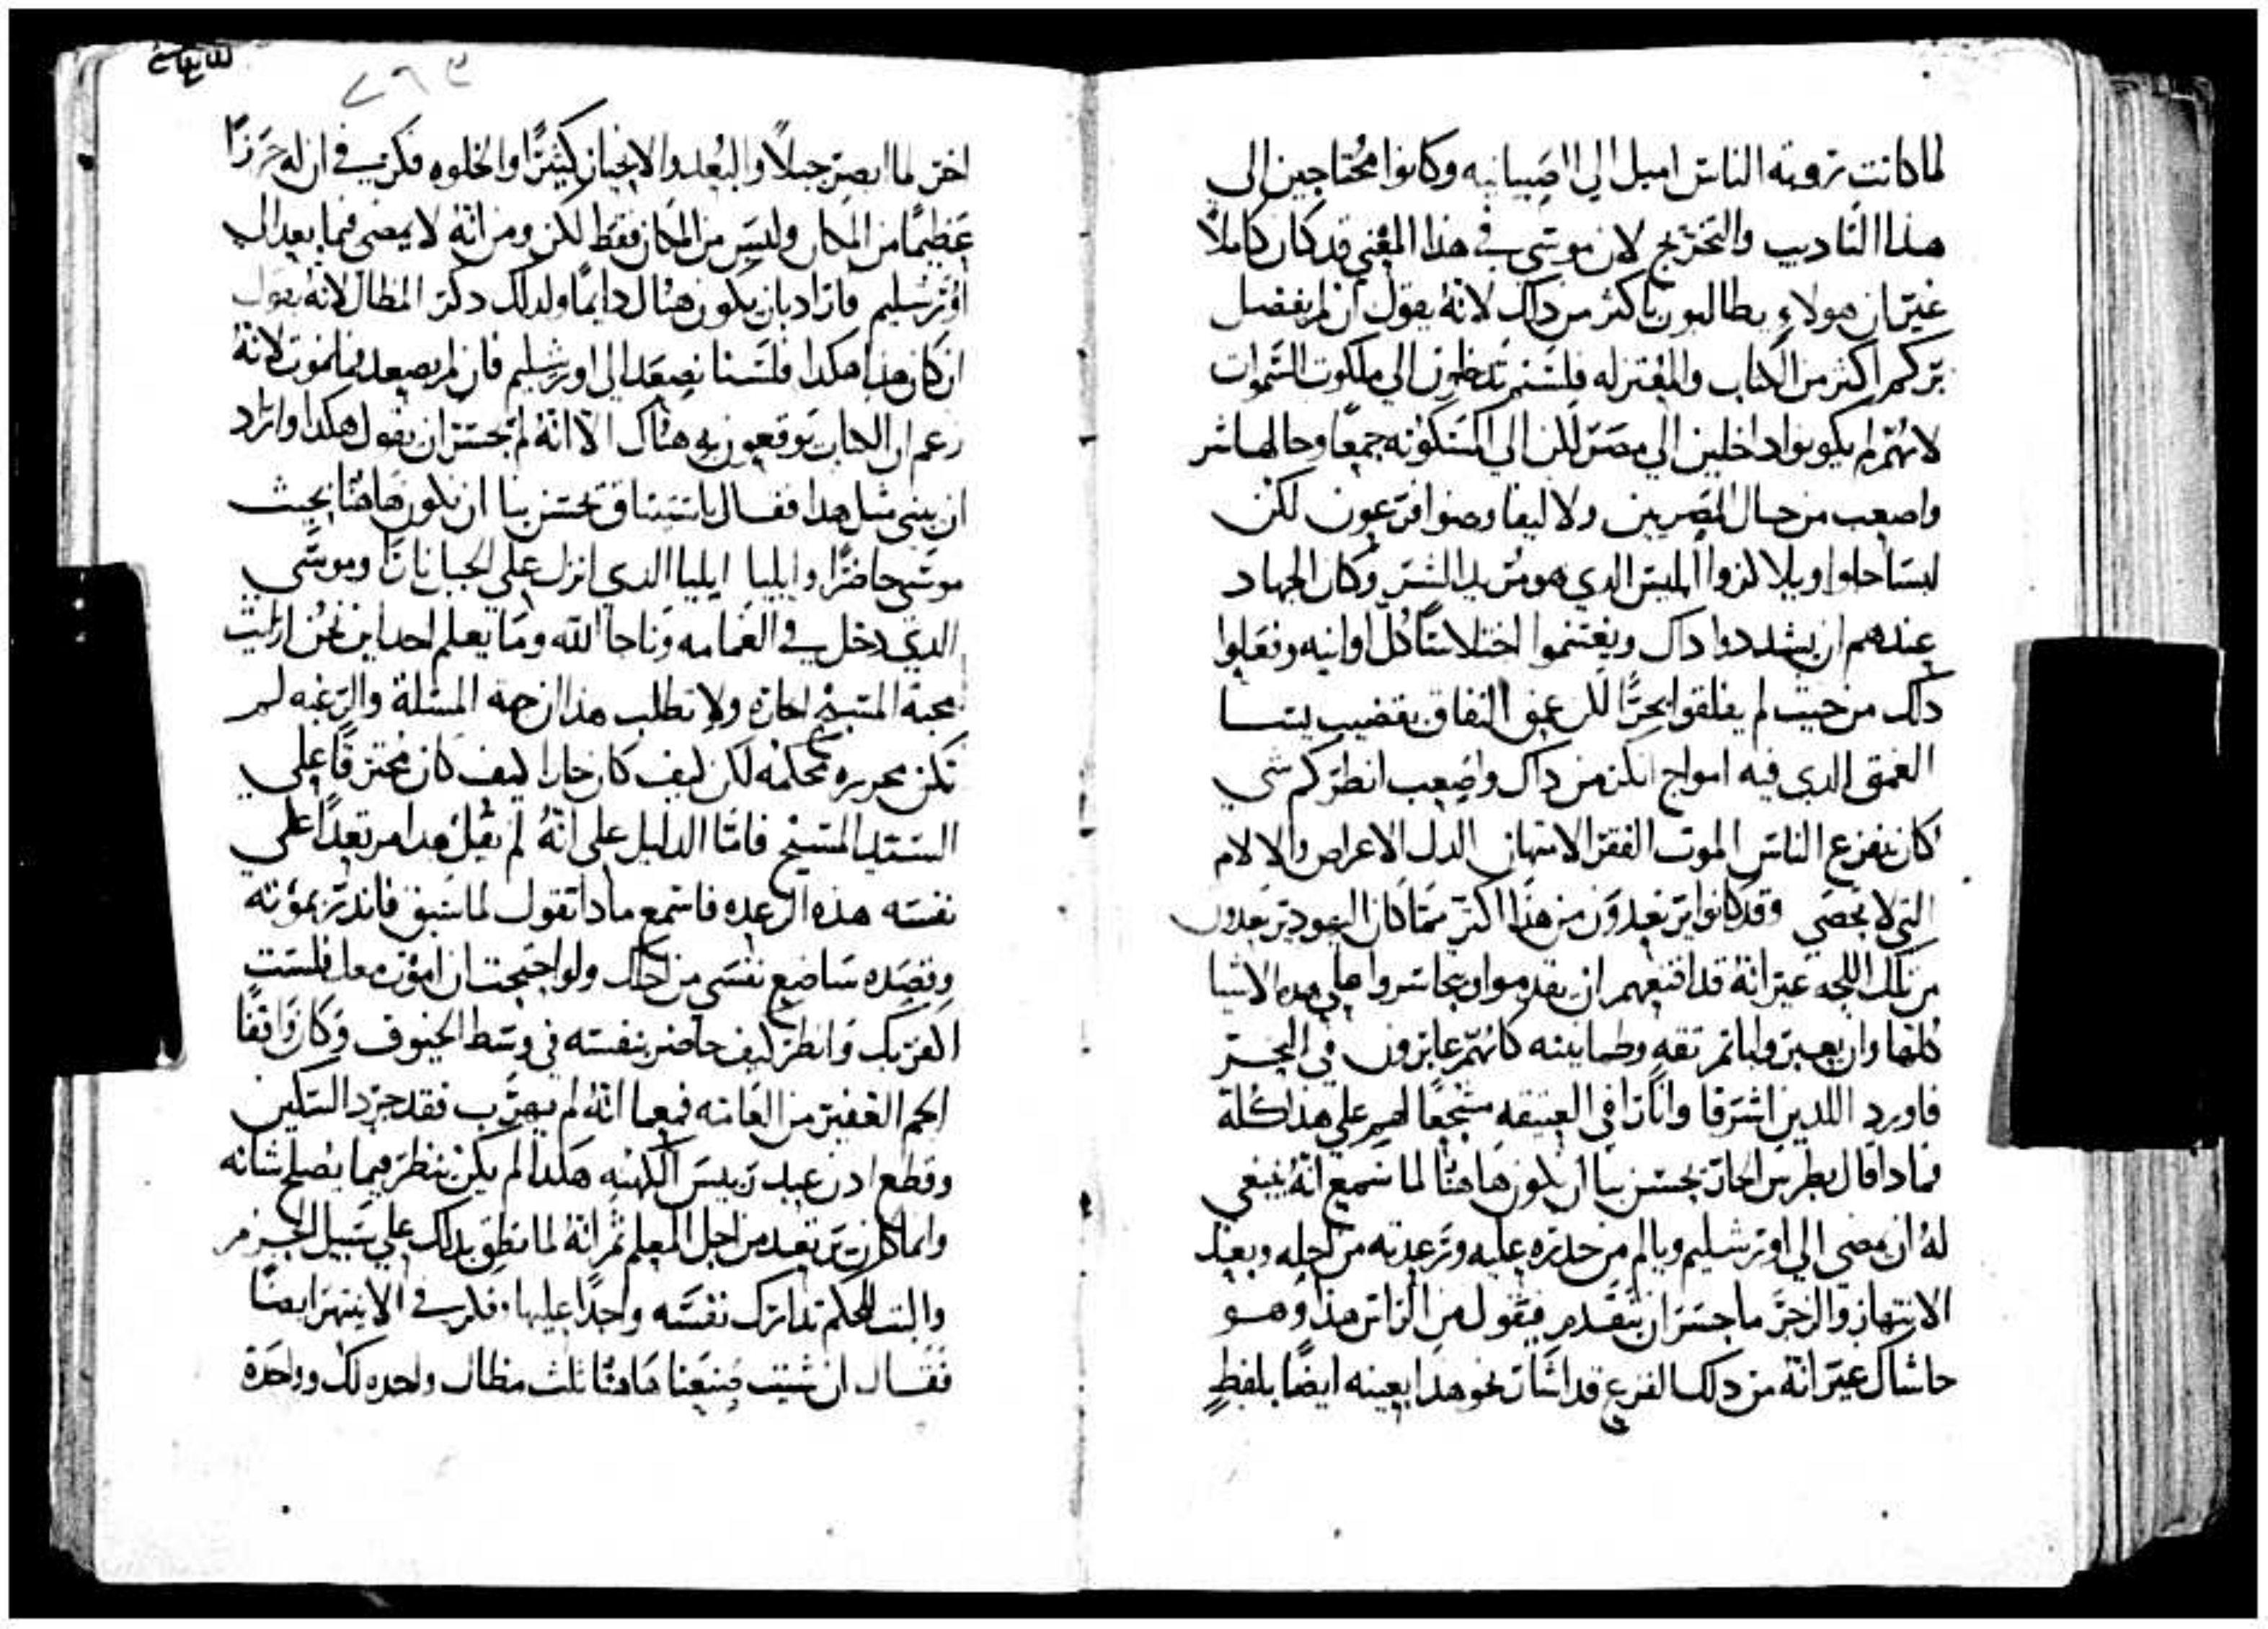 لما كانت تروته الناس اميل الي الصبيانيه وكانوا محتاجين الي
هذا التاديب والتخريج لان موسي في هذا المعني قد كان كاملاً
غير ان هولاءِ يطالبون باكثر من داك لانهُ يقول ان لم يفضل
بركم اكثر من الكتاب والمعتزله فلستم تدخلون الي ملكوت السموات
لانهم لم يكونوا داخلين الي مصر لكن الي المسكونه جمعًا وحالها شر
واصعب من حال المصريين ولا ليفاوضوا فرعون لكن
ليتناجلوا ويلاكزوا ابليس الدي هو مريد الشر وكان الجهاد
عندهم ان يشددوا داك ويغتنموا اختلاسًا كل اوانيه وفعلوا
دلك من حيث لم يفلقوا بحرًا لكن عمق النفاق بقضيب يسا
العمق الدي فيه امواج اكثر من داك واصعب انظر كم شي
كان يفزع الناس الموت الفقر الامتهان الدل الاعراض والالام
التي لا تحصي وقد كانوا يرتعدون من هذا اكثر مما كان اليهود يرتعدون
من تلك اللجه غير انهُ قد اقنعهم ان يقدموا ويجاسروا علي هده الاشيا
كلها وان يعبروا باتم ثقه وطمانينه كانهم عابرون في البحر
فاورد اللدين اشرقا وانارا في العتيقه مشجعًا لهم علي هذا كله
فمادا قال بطرس الحار يحسن بنا ان نكون هاهنا لما سمع انهُ ينبغي
لهُ ان يمضي الي اورشليم ويالم من حدره عليه وترعدته من اجله وبعد
الانتهار والزجر ما جسر ان يتقدم فيقول من الراس هذا وهو
حاشاك غير انهُ من دلك الفزع قد اشار نحو هدا بعينه ايضًا بلفظٍ
اخر لما ابصر جبلاً والبُعد والانحياز كثيرًا والخلوه فكر في ان له حرزًا
عظيمًا من المكان وليس من المكان فقط لكن ومن انهُ لا يمضي فيما بعد الي
اورشليم فاراد بان يكون هناك دايمًا ولدلك دكر المظال لانهُ يقول
ان كان هدا هكدا فلسنا نصعد الي اورشليم فان لم يصعد فما يموت لانهُ
زعم ان الكتاب يوقعون به هناك الا انهُ لم يجسر ان يقول هكدا واراد
ان يبني مثل هدا فقال باستيثاق يحسن بنا ان نكون هاهنا بحيث
موسي حاضرًا وايليا ايليا الدي انزل علي الجبل نارًا وموسي
الدي دخل في الغمامه وناجا الله وما يعلم احد اين نحن ارايت
محبة المسيح الحاره ولا تطلب هذا ان جهة المسئلة والرغبه لم
تكن محرره محكمه لكن كيف كان حارا كيف كان محترقًا علي
السيد المسيح فاما الدليل علي انهُ لم يقل هدا مرتعدًا علي
نفسه هذه الرعده فاسمع مادا تقول لما سبق فاندر بموته
وقصده ساضع نفسي من اجلك ولو احتجت ان اموت معك فلست
اكفر بك وانظر كيف خاطر بنفسه في وسط الحتوف وكان واقفًا
الجم الغفير من العامه فمعما انهُ لم يهرب فقد جرد السكين
وقطع ادن عبد رييس الكهنه هكدا لم يكن ينظر فيما يصلح شانه
وانما كان يرتعد من اجل المعلم ثم انهُ لما نطق بدلك علي سبيل الجزم
والبت للحكم تدارك نفسه واجدًا عليها وفكر في الا ينتهر ايضًا
فقال ان شيت صنعنا هاهنا ثلث مظال واحده لك وواحدة